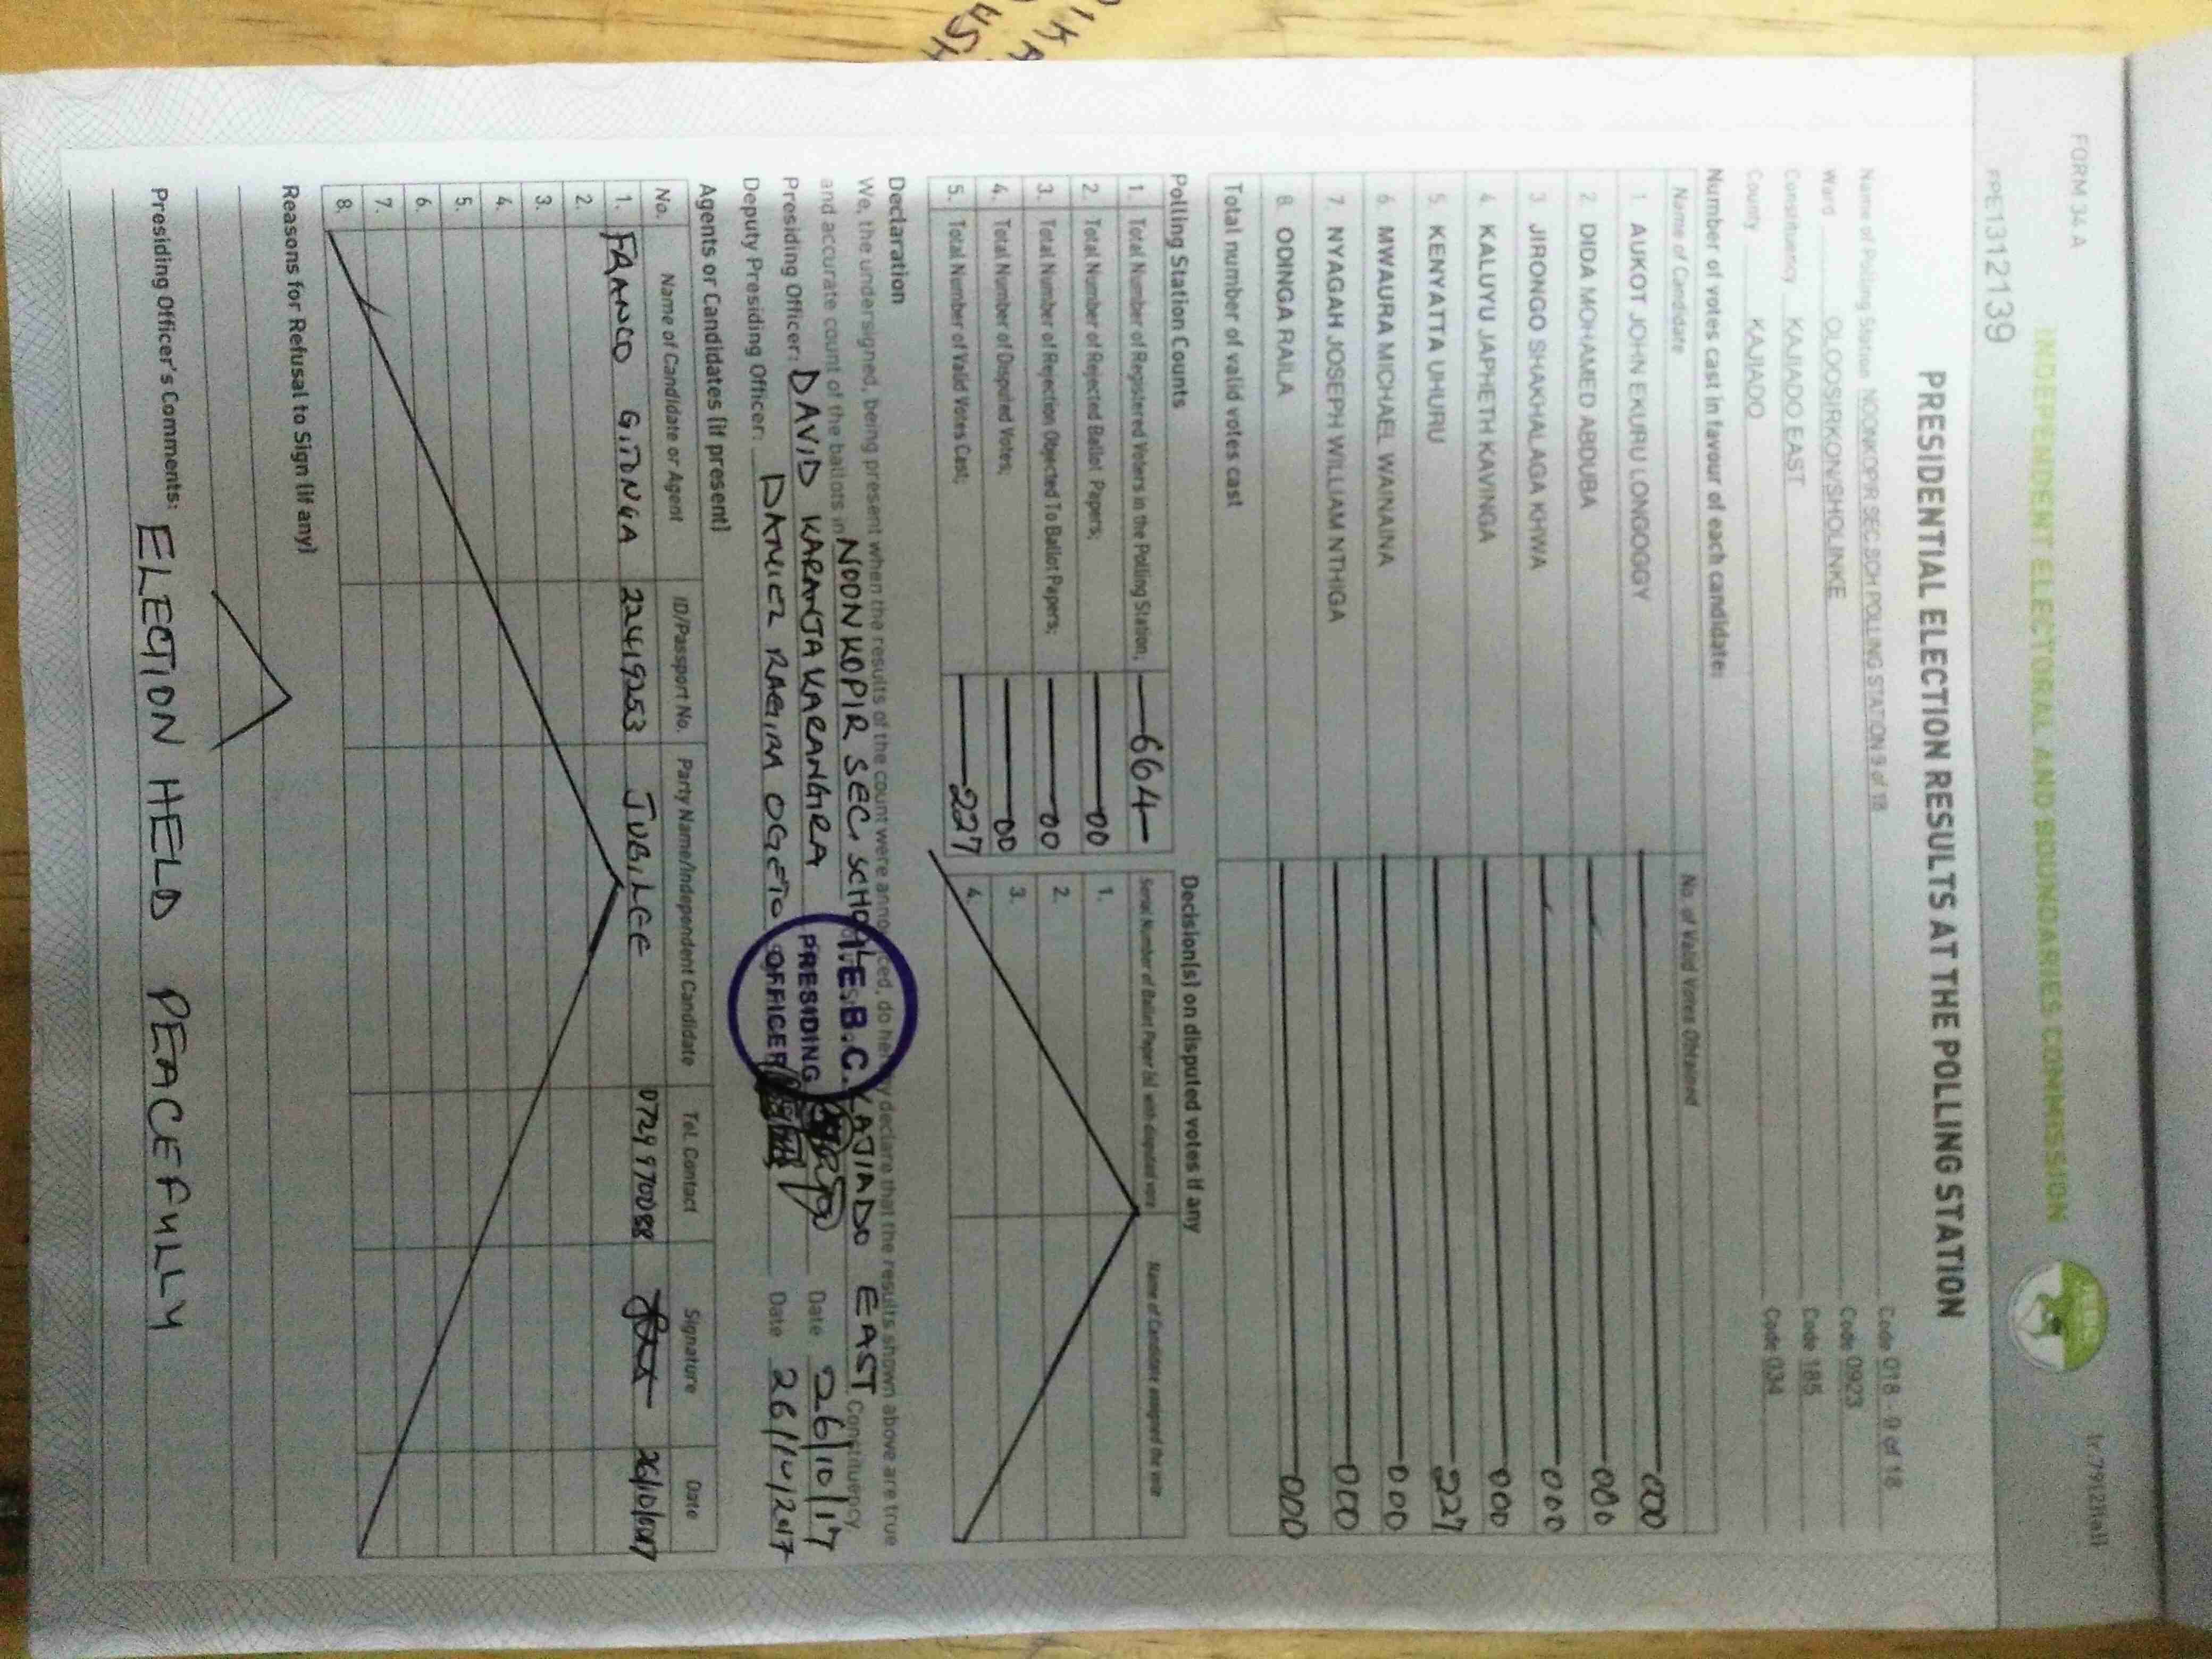 FORM 34 A
INDEPENDENT ELECTORAL AND BOUNDARIES COMMISSION
PRESIDENTIAL ELECTION RESULTS AT THE POLLING STATION
Name of Polling Station NOONKOPIR SEC.SCH POLLING STATION 9 of 18 Code 018 - 9 of 18
Ward OLOOSIRKON/SHOLINKE Code 0923
Constituency KAJIADO EAST Code 185
County KAJIADO Code 034
Number of votes cast in favour of each candidate:
Name of Candidate No. of Valid Votes Obtained
1. AUKOT JOHN EKURU LONGOGGY 000
2. DIDA MOHAMED ABDUBA 000
3. JIRONGO SHAKHALAGA KHWA 000
4. KALUYU JAPHETH KAVINGA 000
5. KENYATTA UHURU 227
6. MWAURA MICHAEL WAINAINA 000
7. NYAGAH JOSEPH WILLIAM NTHIGA 000
8. ODINGA RAILA 000
Total number of valid votes cast
Polling Station Counts
1. Total Number of Registered Voters in the Polling Station; 664
2. Total Number of Rejected Ballot Papers; 00
3. Total Number of Rejection Objected To Ballot Papers; 00
4. Total Number of Disputed Votes; 00
5. Total Number of Valid Votes Cast; 227
Decision(s) on disputed votes if any
Serial Number of Ballot Paper (s) with disputed vote Name of Candidate assigned the vote
1.
2.
3.
4.
Declaration
We, the undersigned, being present when the results of the count were announced, do hereby declare that the results shown above are true
and accurate count of the ballots in NOONKOPIR SEC. SCHOOL KAJIADO EAST Constituency
Presiding Officer: DAVID KARANJA KARANGIRA Date 26/10/17
Deputy Presiding Officer: DANIEL RAGIRA OGETO Date 26/10/2017
I.E.B.C.
PRESIDING
OFFICER
Agents or Candidates (if present)
No. Name of Candidate or Agent ID/Passport No. Party Name/Independent Candidate Tel. Contact Signature Date
1. FRANCO GITONGA 22419253 JUBILEE 0729970088
2.
3.
4.
5.
6.
7.
8.
Reasons for Refusal to Sign (if any)
Presiding Officer's Comments: ELECTION HELD PEACEFULLY